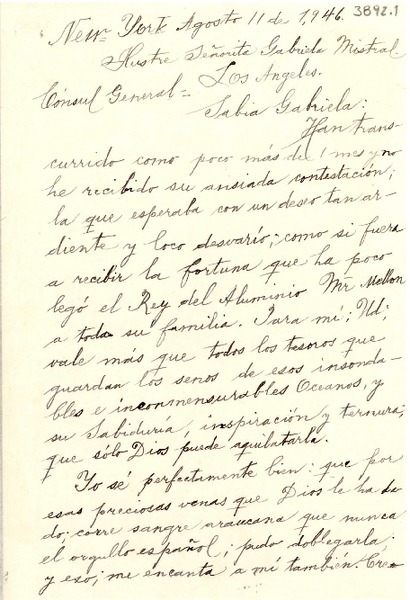 3892.1
New York Agosto 11 de 1,946.
Ilustre Señorita Gabriela Mistral
Los Angeles.
Cónsul General=
Sabia Gabriela:
Han trans-
currido como poco más de 1 mes y no
he recibido su ansiada contestación;
la que esperaba con un deseo tan ar-
diente y loco desvarío; como si fuera
a recibir la fortuna que ha poco
legó el Rey del Aluminio Mr Mellon
a toda su familia. Para mí; Ud;
vale más que todos los tesoros que
guardan los senos de esos insonda-
bles e inconmensurables Oceanos, y
su Sabiduría, inspiración y ternura;
que sólo Dios puede aquilatarla.
Yo sé perfectamente bien: que por
esas preciosas venas que Dios le ha da-
do; corre sangre araucana que nunca
el orgullo español; pudo doblegarla:
y eso; me encanta a mí también. Cre-